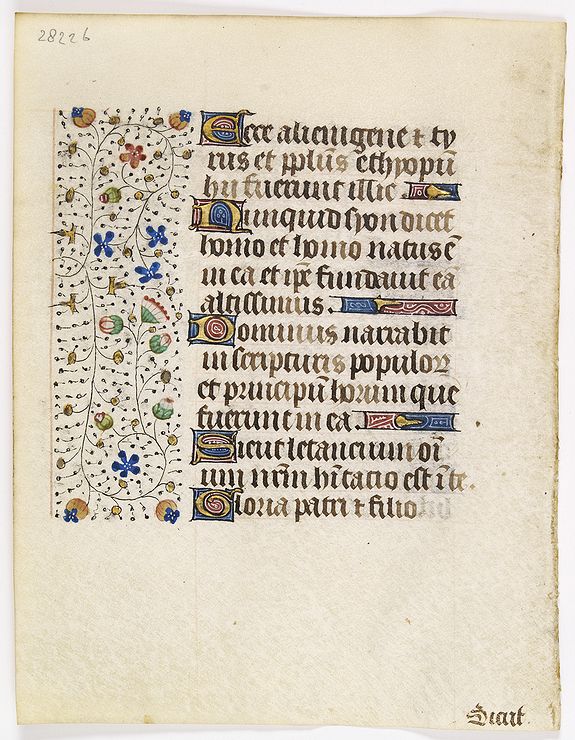 28226
Ecce alienigene ⁊ ty
rus et ppl̄us ethyopū
hii fuerunt illic
Nunquid syon dicet
homo et homo natus ē
in ea et ip̄e fundauit eā
altissimus.
Dominus narrabit
in scripturis populoꝝ
et principū horum que
fuerunt in ea.
Sicut letancium oī
um nr̄m hītacio est ī te.
Gloria patri ⁊ filio
Sicut.